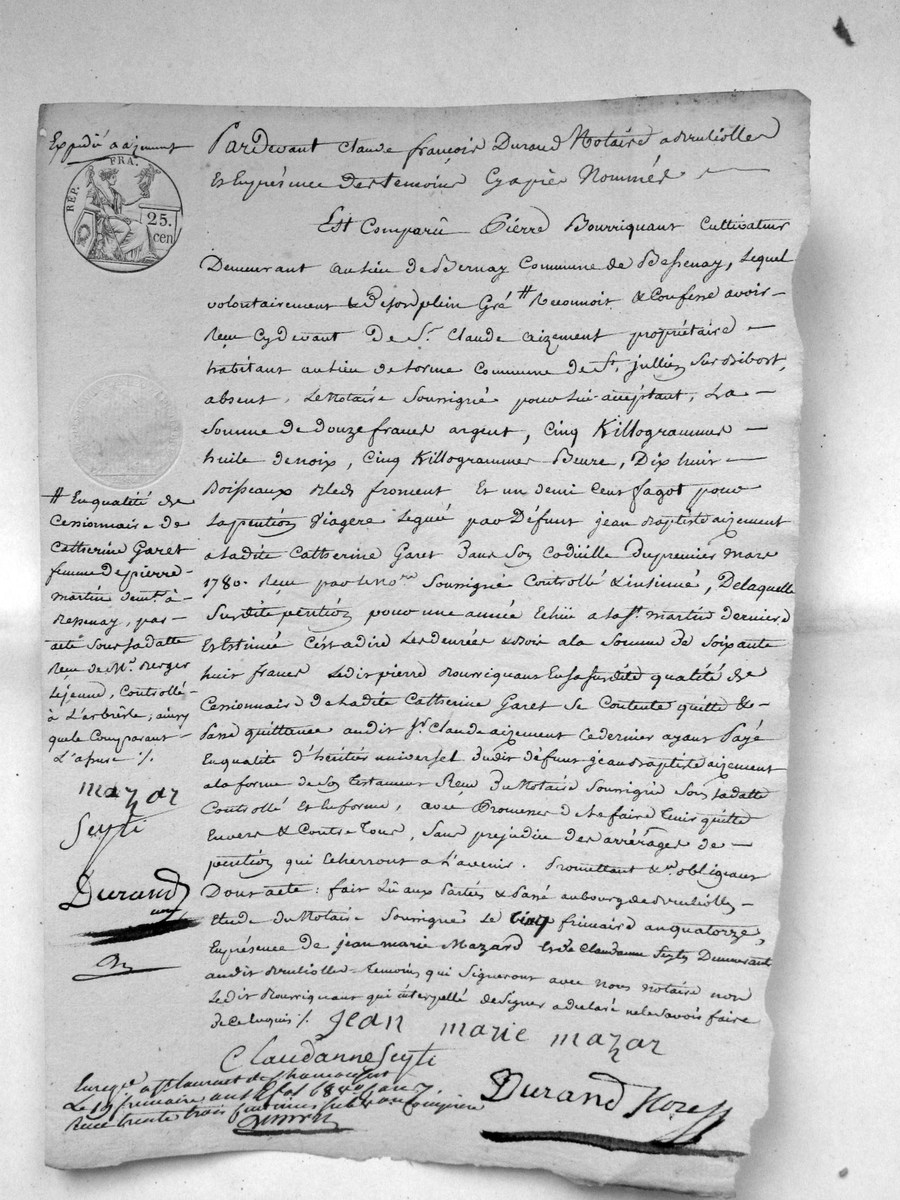 Expédié a aizement
RÉP. FRA.
25.
cen
Pardevant Claude françois Durand Notaire a Brulliolles
Et En présence des temoins Cyaprès Nommés
Est Comparû Piérre Bourriquant Cultivateur
Demeurant au lieu de Bernay Commune de Bessenay, Lequel
volontairement & de son plein Gré # Reconnoit & Confesse avoir
Reçu Cydevant De Sr. Claude aizement propriétaire
habitant au lieu de Commune de St. jullien Sur Bibost,
absent, Le Notaire Soussigné pour lui acceptant, La
Somme de douze francs argent, Cinq Killogrammes
huile de noix, Cinq Killogrammes Beure, Dix huit
Boisseaux Bled froment Et un demi Cent fagot pour
La pention viagere Leguée par Défunt jean Baptiste aizement
a Ladite Catherine Garet Dans Son Codicille Du premier mars
1780. Reçu par le nore. Soussigné Controllé & insinué, De laquelle
Susdite pention pour une année Echue a la St. martin derniere
Et Estimée C'est a dire Les denrées a la Somme De Soixante
huit francs Ledit pierre Bourriquant En sa susdite qualité de
Cessionnaire De Ladite Catherine Garet Se Contente quitte &
Passe quittance audit Sr. Claude aizement Ce dernier ayant Payé
En qualité d'héritier universel Dudit défunt jean Baptiste aizement
a la forme de Son Testament Reçu Du Notaire Soussigné Sous Sa datte
Controllé Et En forme, avec Promesse d'En faire Tenir quitte
Envers & Contre Tous, Sans préjudice des arrérages de
pention qui Echerront a L'avenir. Promettant &a. obligeant
Dont acte: fait Lû aux Parties & Passé au bourg de Brulliolles
Etude du Notaire Soussigné Le Cinq frimaire an quatorze,
En présence de jean marie Mazard Et de Claudanne Seyti Demeurant
audit Brulliolles temoins qui Signeront avec Nous Notaire non
Ledit Bourriquant qui interpellé de Signer a déclaré ne le Savoir faire
de Ce Enquis /.
# En qualité de
Cessionnaire de
Catherine Garet
femme de pierre
martin demt. à
Bessenay, par
acte Sous Sa datte
Reçu de Me. Berger
Lejeune, Controllé
à L'arbrêsle; ainsy
que le Comparant
L'assure /.
mazar
Seyti
Durand
jean marie mazar
Claudanne Seyti
Durand Nore
Enregé. a St Laurent de Chamousset
Le 19 frimaire an 14 fol 184
Reçu trente trois centimes